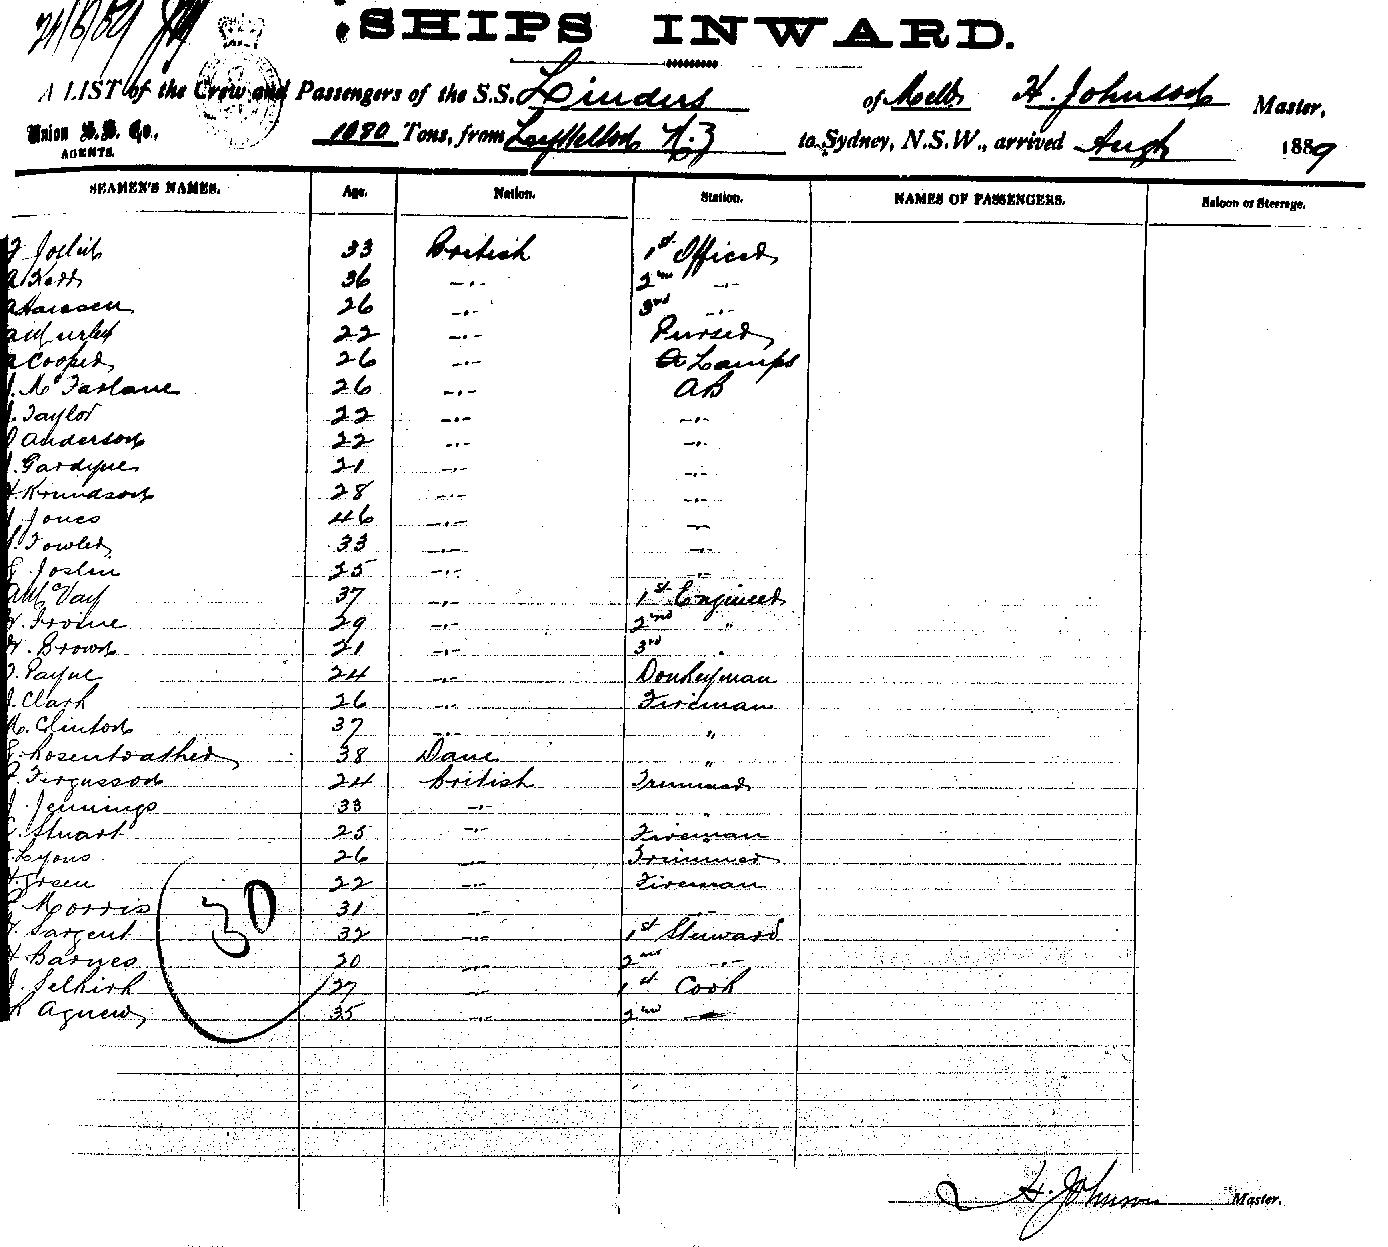 21/8/89
SHIPS INWARD.
A LIST of the Crew and Passengers of the S.S. Linders of Melb H. Johnson Master,
Union S.S. Co., AGENTS. 1080 Tons, from Lyttelton N.Z to Sydney, N.S.W., arrived Augt 1889
SEAMEN'S NAMES. Age. Nation. Station. NAMES OF PASSENGERS. Saloon or Steerage.
J Joslin 33 British 1st Officer
A Kerr 36 -"- 2nd -"-
A Hansen 26 -"- 3rd -"-
22 -"- Purser
A Cooper 26 -"- Lamps
J. McFarlane 26 -"- AB
J. Taylor 22 -"- -"-
J Anderson 22 -"- -"-
J. Gardyne 21 -"- -"-
H Knundson 28 -"- -"-
J. Jones 46 -"- -"-
J. Fowler 33 -"- -"-
G Joslin 25 -"- -"-
A McVay 37 -"- 1st Engineer
29 -"- 2nd "
H. Brown 21 -"- 3rd "
J. Payne 24 -"- Donkeyman
J. Clark 26 -"- Fireman
M. Clinton 37 -"- "
G. Rosentrather 38 Dane "
J. Fergusson 24 British Trimmer
J. Jennings 33 -"- "
C. Stuart 25 -"- Fireman
Lyons 26 -"- Trimmer
H. Green 22 -"- Fireman
P Morris 31 -"- -"-
30
F. Sargent 32 -"- 1st Steward
H Barnes 20 -"- 2nd -"-
J. Selkirk 27 -"- 1st Cook
R Agnew 35 -"- 2nd -"-
H. Johnson Master.